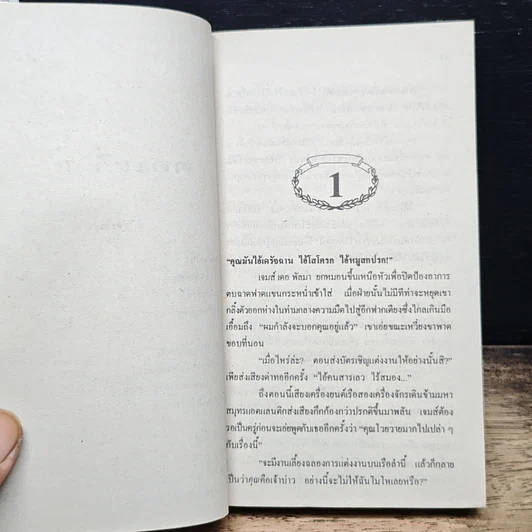 1
"คุณมันไอ้เดรัจฉาน ไอ้โสโครก ไอ้หมูสกปรก!"
เจมส์ เดอ พัลมา ยกหมอนขึ้นเหนือหัวเพื่อปิดป้องอาการ
ตบฉาดฟาดแขนกระหน่ำเข้าใส่ เมื่อฝ่ายนั้นไม่มีทีท่าจะหยุดเขา
กลิ้งตัวออกห่างในท่ามกลางความมืดไปสู่อีกฟากเตียงซึ่งไกลเกินมือ
เอื้อมถึง "ผมกำลังจะบอกคุณอยู่แล้ว" เขาเอ่ยขณะเหวี่ยงขาพาด
ขอบที่นอน
"เมื่อไหร่ล่ะ? ตอนส่งบัตรเชิญแต่งงานให้อย่างนั้นสิ?"
เพียส่งเสียงด่าทออีกครั้ง "ไอ้คนสารเลว ไร้สมอง..."
ถึงตอนนี้เสียงเครื่องยนต์เรือสองเครื่องจักรเดินข้ามมหา
สมุทรแอตแลนติกส่งเสียงกึกก้องกว่าปรกติขึ้นมาพลัน เจมส์ต้อง
รอเป็นครู่ก่อนจะเอ่ยพูดกับเธออีกครั้งว่า "คุณโวยวายมากไปเปล่า ๆ
กับเรื่องนี้"
"จะมีงานเลี้ยงฉลองการแต่งงานบนเรือลำนี้ แล้วก็กลาย
เป็นว่าคุณคือเจ้าบ่าว อย่างนี้จะไม่ให้ฉันโมโหเลยหรือ?"